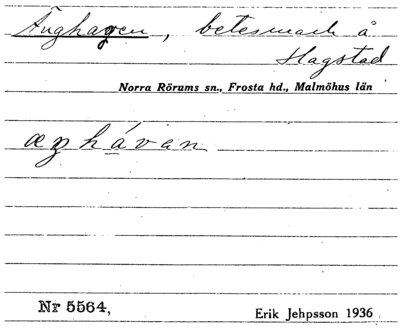 Änghagen, betesmark å
Hagstad
Norra Rörums sn., Frosta hd., Malmöhus län
æŋhávan
Nr 5564,
Erik Jehpsson 1936